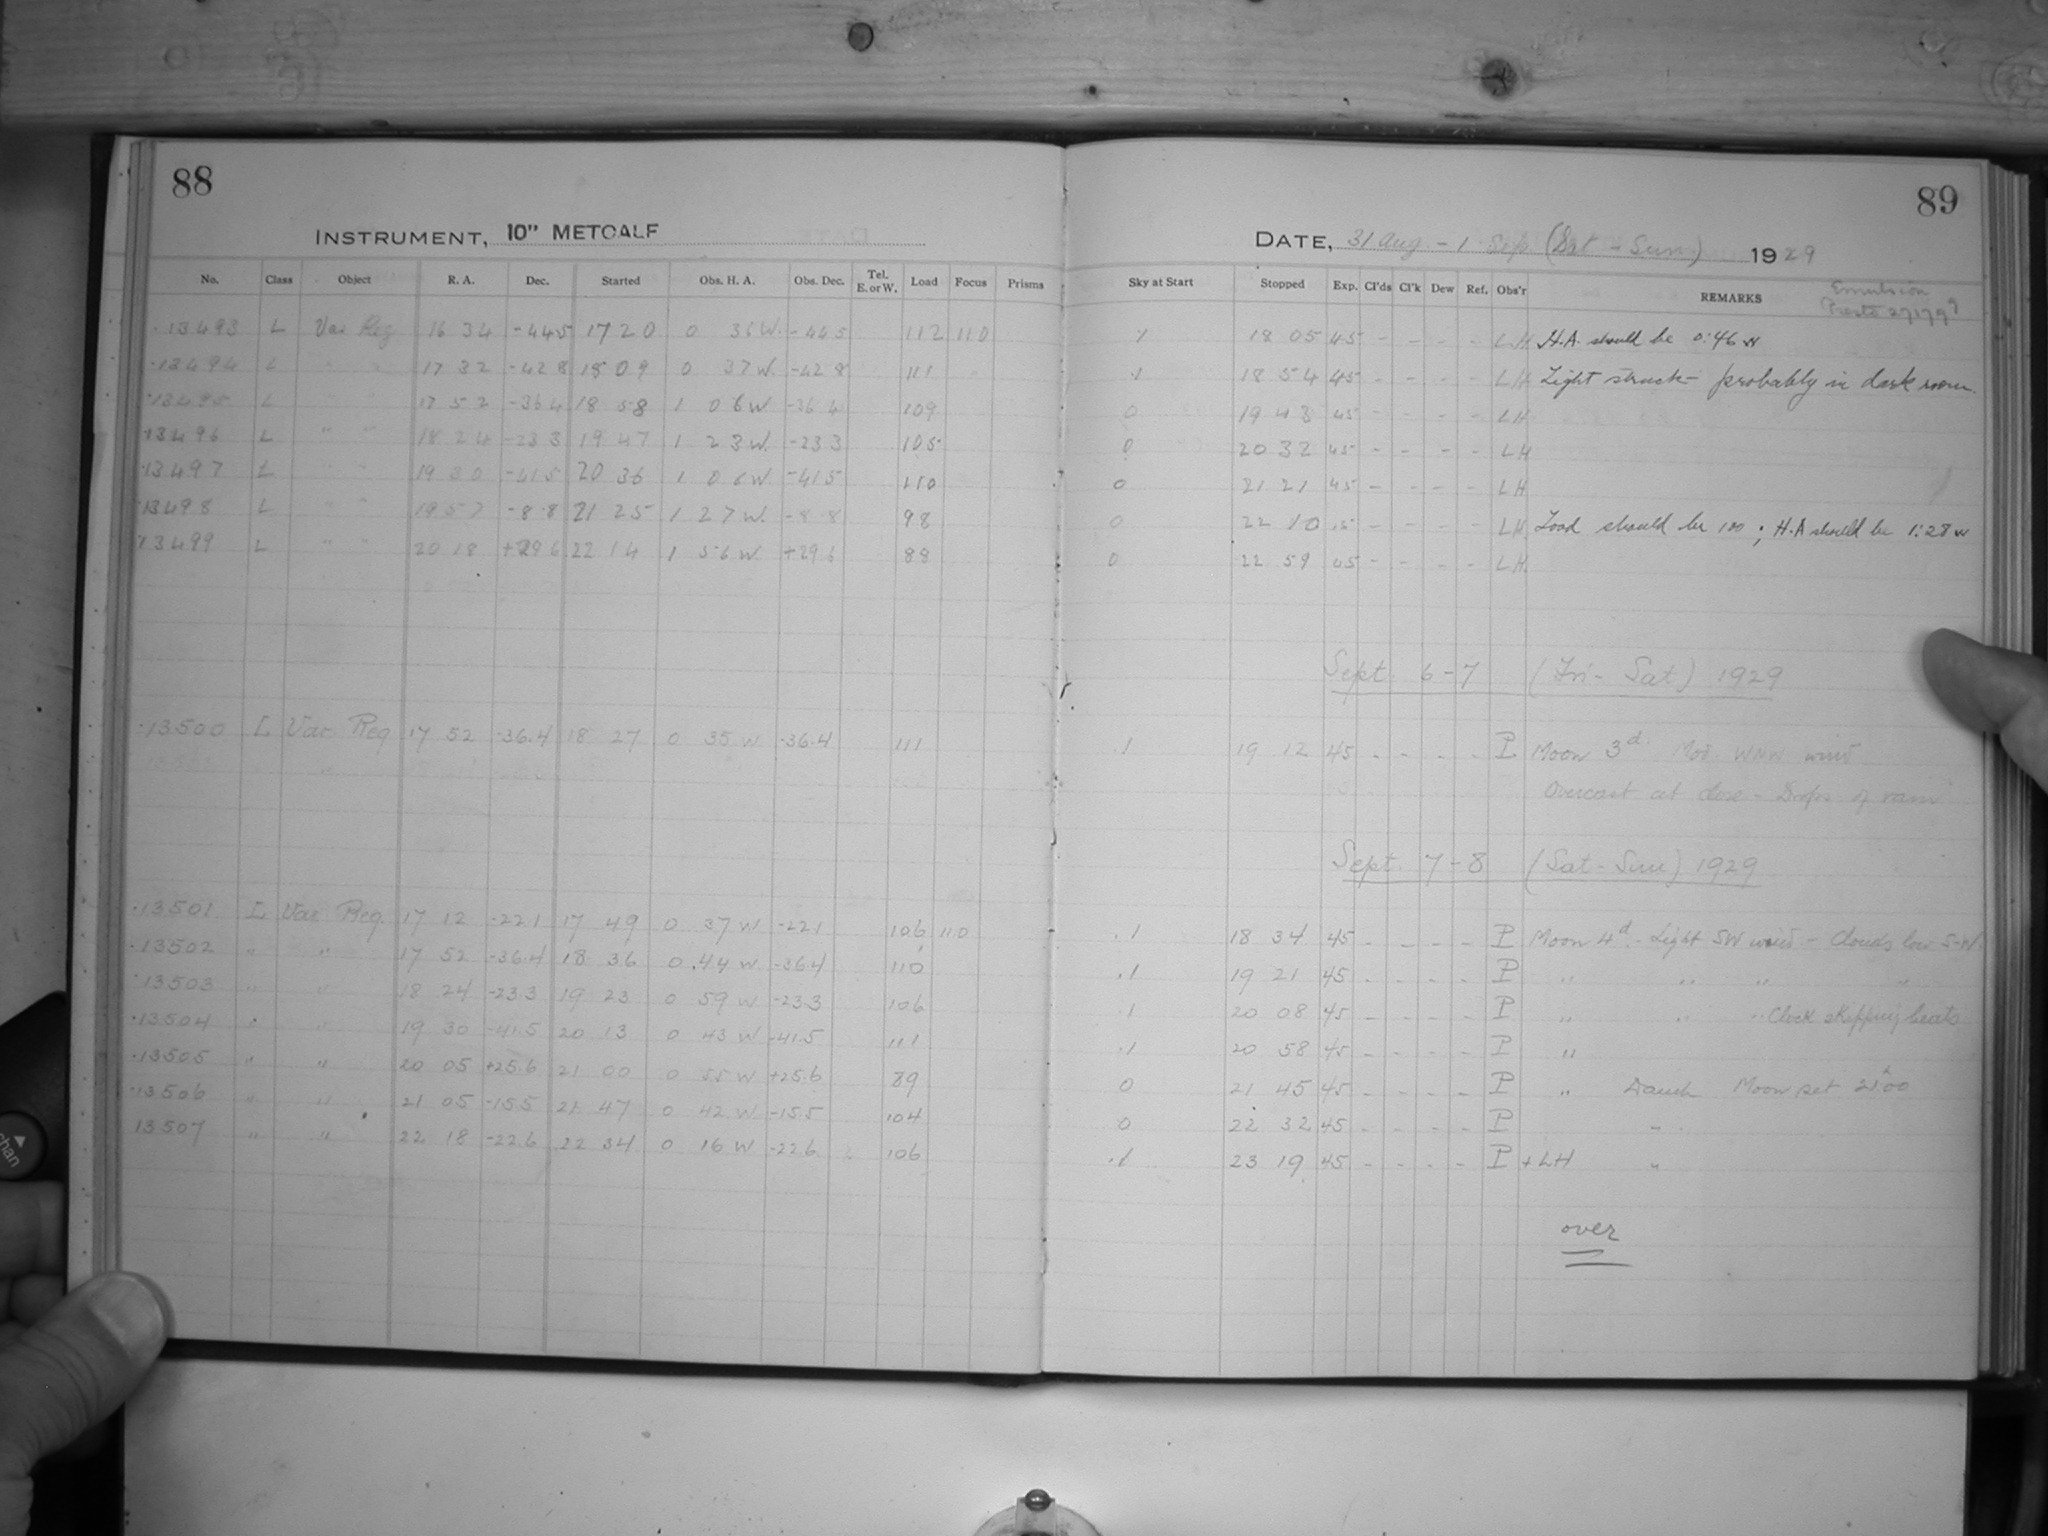 88
INSTRUMENT, 10" METCALF
No. Class Object R. A. Dec. Started Obs. H. A. Obs. Dec. Tel. E. or W. Load Focus Prisms
13493 L Var Reg 16 34 -44.5 17 20 0 36 W. -44.5 112 110
13494 L " " 17 32 -42 8 18 09 0 37 W. -42 8 111
13495 L " " 17 52 -36 4 18 58 1 06 W -36 4 109
13496 L " " 18 24 -23 3 19 47 1 23 W. -23 3 105
13497 L " " 19 30 -41 5 20 36 1 06 W. -41 5 110
13498 L " " 19 57 -8 8 21 25 1 27 W. -8 8 98
13499 L " " 20 18 +29 6 22 14 1 56 W. +29 6 88
13500 L Var Reg 17 52 -36.4 18 27 0 35 W -36.4 111
13501 L Var Reg. 17 12 -22.1 17 49 0 37 W -22.1 106 110
13502 " " 17 52 -36.4 18 36 0 44 W -36.4 110
13503 " " 18 24 -23.3 19 23 0 59 W -23.3 106
13504 " " 19 30 -41.5 20 13 0 43 W -41.5 111
13505 " " 20 05 +25.6 21 00 0 55 W +25.6 89
13506 " " 21 05 -15.5 21 47 0 42 W -15.5 104
13507 " " 22 18 -22.6 22 34 0 16 W -22.6 106
89
DATE, 31 Aug - 1 Sep (Sat - Sun) 1929
Sky at Start Stopped Exp. Cl'ds Cl'k Dew Ref. Obs'r REMARKS Emulsion
18 05 45 - - - - LH H.A. should be 0:46 W
.1 18 54 45 - - - - LH Light struck - probably in dark room
0 19 43 45 - - - - LH
0 20 32 45 - - - - LH
0 21 21 45 - - - - LH
0 22 10 45 - - - - LH Load should be 100; H.A should be 1:28 W
0 22 59 45 - - - - LH
Sept 6-7 (Fri - Sat) 1929
.1 19 12 45 - - - - P Moon 3d Mod. WNW wind
Overcast at close - Drops of rain
Sept 7-8 (Sat-Sun) 1929
.1 18 34 45 - - - - P Moon 4d - Light SW wind - Clouds low S-W.
.1 19 21 45 - - - - P " " " "
.1 20 08 45 - - - - P " " " Clock skipping beats
.1 20 58 45 - - - - P "
0 21 45 45 - - - - P " Moon set 21h00
0 22 32 45 - - - - P "
.1 23 19 45 - - - - P + LH "
over